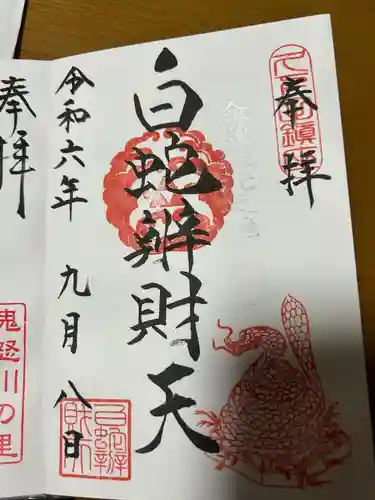 奉拝
白蛇辨財天
令和六年 九月 八日
白蛇辨
財天
奉拝
鬼怒川の里